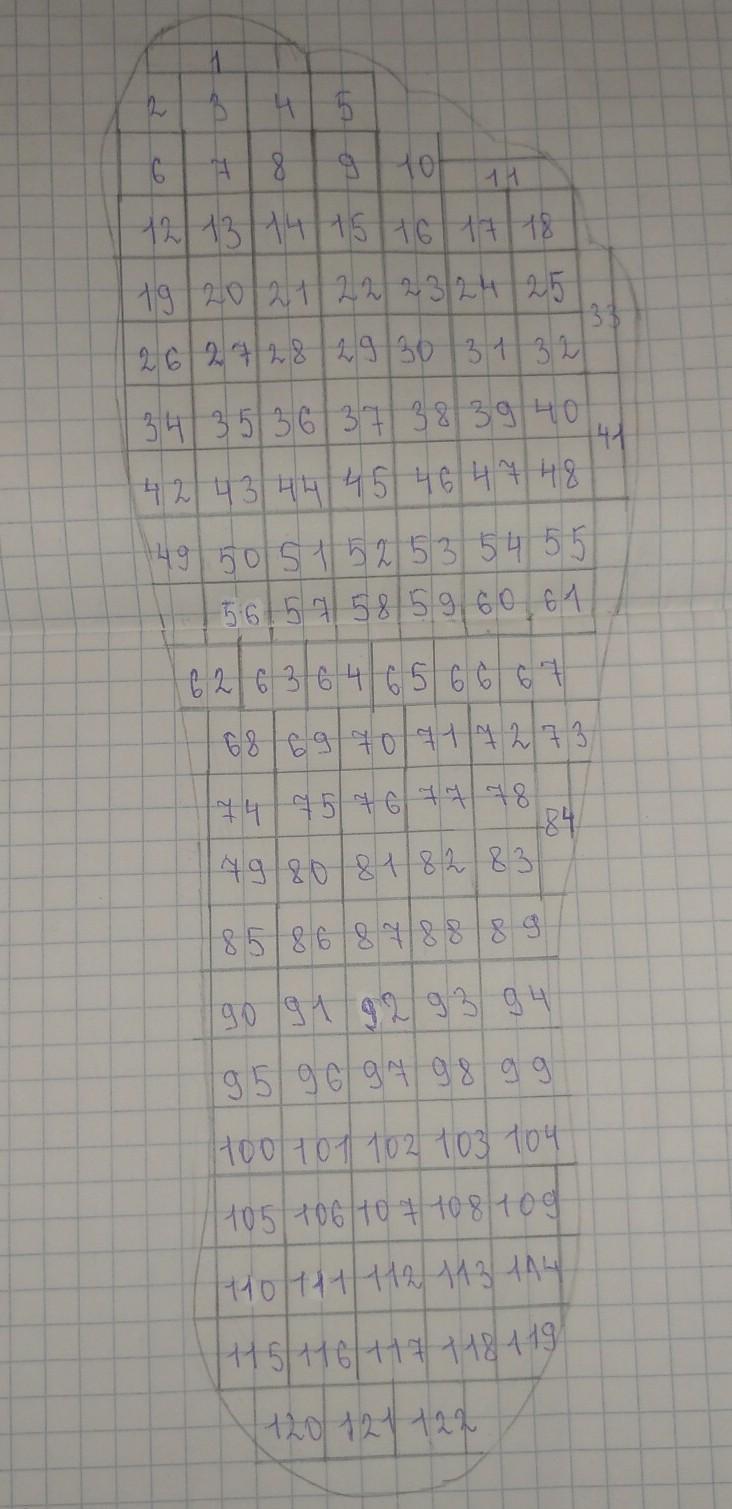 1
2 3 4 5
6 7 8 9 10 11
12 13 14 15 16 17 18
19 20 21 22 23 24 25
33
26 27 28 29 30 31 32
34 35 36 37 38 39 40
41
42 43 44 45 46 47 48
49 50 51 52 53 54 55
56 57 58 59 60 61
62 63 64 65 66 67
68 69 70 71 72 73
74 75 76 77 78
84
79 80 81 82 83
85 86 87 88 89
90 91 92 93 94
95 96 97 98 99
100 101 102 103 104
105 106 107 108 109
110 111 112 113 114
115 116 117 118 119
120 121 122